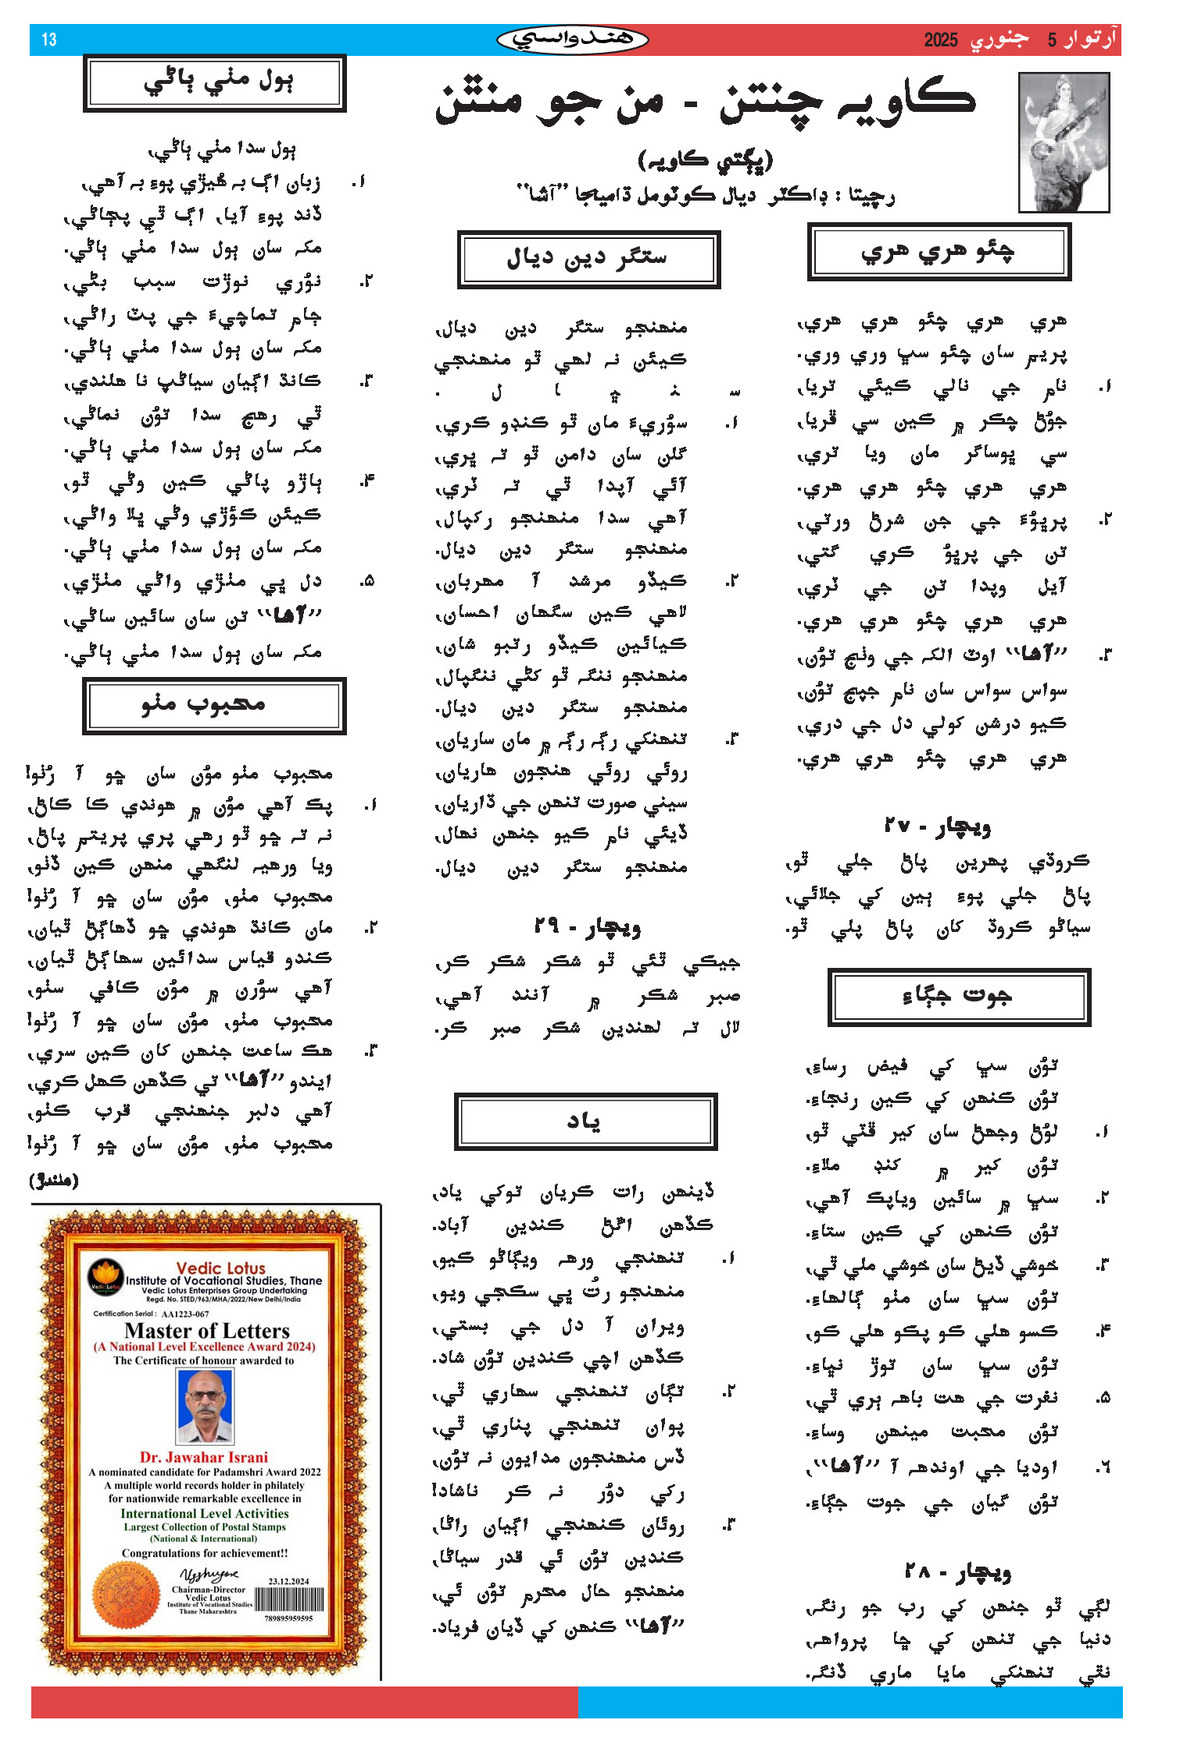 آرتوار 5 جنوري 2025
هندواسي
13
ڪاويہ چنتن - من جو منٿن
(ڀڳتي ڪاويہ)
رچيتا : ڊاڪٽر ديال ڪوٽومل ڌاميجا ”آشا“
چئو هري هري
هري هري چئو هري هري،
پريم سان چئو سڀ وري وري.
۱. نام جي نالي ڪيئي تريا،
جوُڻ چڪر ۾ ڪين سي ڦريا،
سي ڀوساگر مان ويا تري،
هري هري چئو هري هري.
۲. پرڀوُءَ جي جن شرڻ ورتي،
تن جي پرڀوُ ڪري گتي،
آيل وپدا تن جي ٽري،
هري هري چئو هري هري.
۳. ”آشا“ اوٽ الکہ جي وٺج توُن،
سواس سواس سان نام جپج توُن،
ڪيو درشن کولي دل جي دري،
هري هري چئو هري هري.
ويچار - ۲۷
ڪروڌي پهرين پاڻ جلي ٿو،
پاڻ جلي پوءِ ٻين کي جلائي،
سياڻو ڪروڌ کان پاڻ پلي ٿو.
جوت جڳاءِ
توُن سڀ کي فيض رساءِ،
توُن ڪنهن کي ڪين رنجاءِ.
۱. لوُڻ وجهڻ سان کير ڦٽي ٿو،
توُن کير ۾ کنڊ ملاءِ.
۲. سڀ ۾ سائين وياپڪ آهي،
توُن ڪنهن کي ڪين ستاءِ.
۳. خوشي ڏيڻ سان خوشي ملي ٿي،
توُن سڀ سان مٺو ڳالهاءِ.
۴. ڪسو هلي ڪو پڪو هلي ڪو،
توُن سڀ سان توڙ نڀاءِ.
۵. نفرت جي هت باهہ ٻري ٿي،
توُن محبت مينهن وساءِ.
۶. اوديا جي اوندهہ آ ”آشا“،
توُن گيان جي جوت جڳاءِ.
ويچار - ۲۸
لڳي ٿو جنهن کي رب جو رنگہ،
دنيا جي تنهن کي ڇا پرواهہ،
نٿي تنهنکي مايا ماري ڏنگہ.
ستگر دين ديال
منهنجو ستگر دين ديال،
ڪيئن نہ لهي ٿو منهنجي
س ن ڀ ا ل .
۱. سوُريءَ مان ٿو ڪنڊو ڪري،
گلن سان دامن ٿو تہ ڀري،
آئي آپدا ٿي تہ ٽري،
آهي سدا منهنجو رکپال،
منهنجو ستگر دين ديال.
۲. ڪيڏو مرشد آ مهربان،
لاهي ڪين سگهان احسان،
ڪيائين ڪيڏو رتبو شان،
منهنجو ننگہ ٿو کڻي ننگپال،
منهنجو ستگر دين ديال.
۳. تنهنکي رڳہ رڳہ ۾ مان ساريان،
روئي روئي هنجون هاريان،
سيني صورت تنهن جي ڌاريان،
ڏيئي نام ڪيو جنهن نهال،
منهنجو ستگر دين ديال.
ويچار - ۲۹
جيڪي ٿئي ٿو شڪر شڪر ڪر،
صبر شڪر ۾ آنند آهي،
لال تہ لهندين شڪر صبر ڪر.
ياد
ڏينهن رات ڪريان توکي ياد،
ڪڏهن اڱڻ ڪندين آباد.
۱. تنهنجي ورهہ ويڳاڻو ڪيو،
منهنجو رت ڀي سڪجي ويو،
ويران آ دل جي بستي،
ڪڏهن اچي ڪندين توُن شاد.
۲. تڳان تنهنجي سهاري ٿي،
پوان تنهنجي پناري ٿي،
ڏس منهنجون مدايون نہ توُن،
رکي دوُر نہ ڪر ناشاد!
۳. روئان ڪنهنجي اڳيان راڻا،
ڪندين توُن ئي قدر سياڻا،
منهنجو حال محرم توُن ئي،
”آشا“ ڪنهن کي ڏيان فرياد.
ٻول مٺي ٻاڻي
ٻول سدا مٺي ٻاڻي،
۱. زبان اڳ بہ هُيڙي پوءِ بہ آهي،
ڏند پوءِ آيا، اڳ ٿي پڇاڻي،
مکہ سان ٻول سدا مٺي ٻاڻي.
۲. نوُري نوڙت سبب بڻي،
ڄام تماچيءَ جي پٽ راڻي،
مکہ سان ٻول سدا مٺي ٻاڻي.
۳. ڪانڌ اڳيان سياڻپ نا هلندي،
ٿي رهج سدا توُن نماڻي،
مکہ سان ٻول سدا مٺي ٻاڻي.
۴. ٻاڙو پاڻي ڪين وڻي ٿو،
ڪيئن ڪوُڙي وڻي ڀلا واڻي،
مکہ سان ٻول سدا مٺي ٻاڻي.
۵. دل ڀي مٺڙي واڻي مٺڙي،
”آشا“ تن سان سائين ساڻي،
مکہ سان ٻول سدا مٺي ٻاڻي.
محبوب مٺو
محبوب مٺو موُن سان ڇو آ رُٺو!
۱. پڪ آهي موُن ۾ هوندي ڪا ڪاڻ،
نہ تہ ڇو ٿو رهي پري پريتم پاڻ،
ويا ورهيہ لنگهي منهن ڪين ڏٺو،
محبوب مٺو، موُن سان ڇو آ رُٺو!
۲. مان ڪانڌ هوندي ڇو ڏهاڳڻ ٿيان،
ڪندو قياس سدائين سهاڳڻ ٿيان،
آهي سوُرن ۾ موُن ڪافي سٺو،
محبوب مٺو، موُن سان ڇو آ رُٺو!
۳. هڪ ساعت جنهن کان ڪين سري،
ايندو ”آشا“ تي ڪڏهن کهل ڪري،
آهي دلبر جنهنجي قرب ڪٺو،
محبوب مٺو، موُن سان ڇو آ رُٺو!
(هلندڙ)
Vedic Lotus
Institute of Vocational Studies, Thane
Vedic Lotus Enterprises Group Undertaking
Regd. No. STED/963/MHA/2022/New Delhi/India
Certification Serial : AA1223-067
Master of Letters
(A National Level Excellence Award 2024)
The Certificate of honour awarded to
Dr. Jawahar Israni
A nominated candidate for Padamshri Award 2022
A multiple world records holder in philately
for nationwide remarkable excellence in
International Level Activities
Largest Collection of Postal Stamps
(National & International)
Congratulations for achievement!!
23.12.2024
Chairman-Director
Vedic Lotus
Institute of Vocational Studies
Thane Maharashtra
789895959595